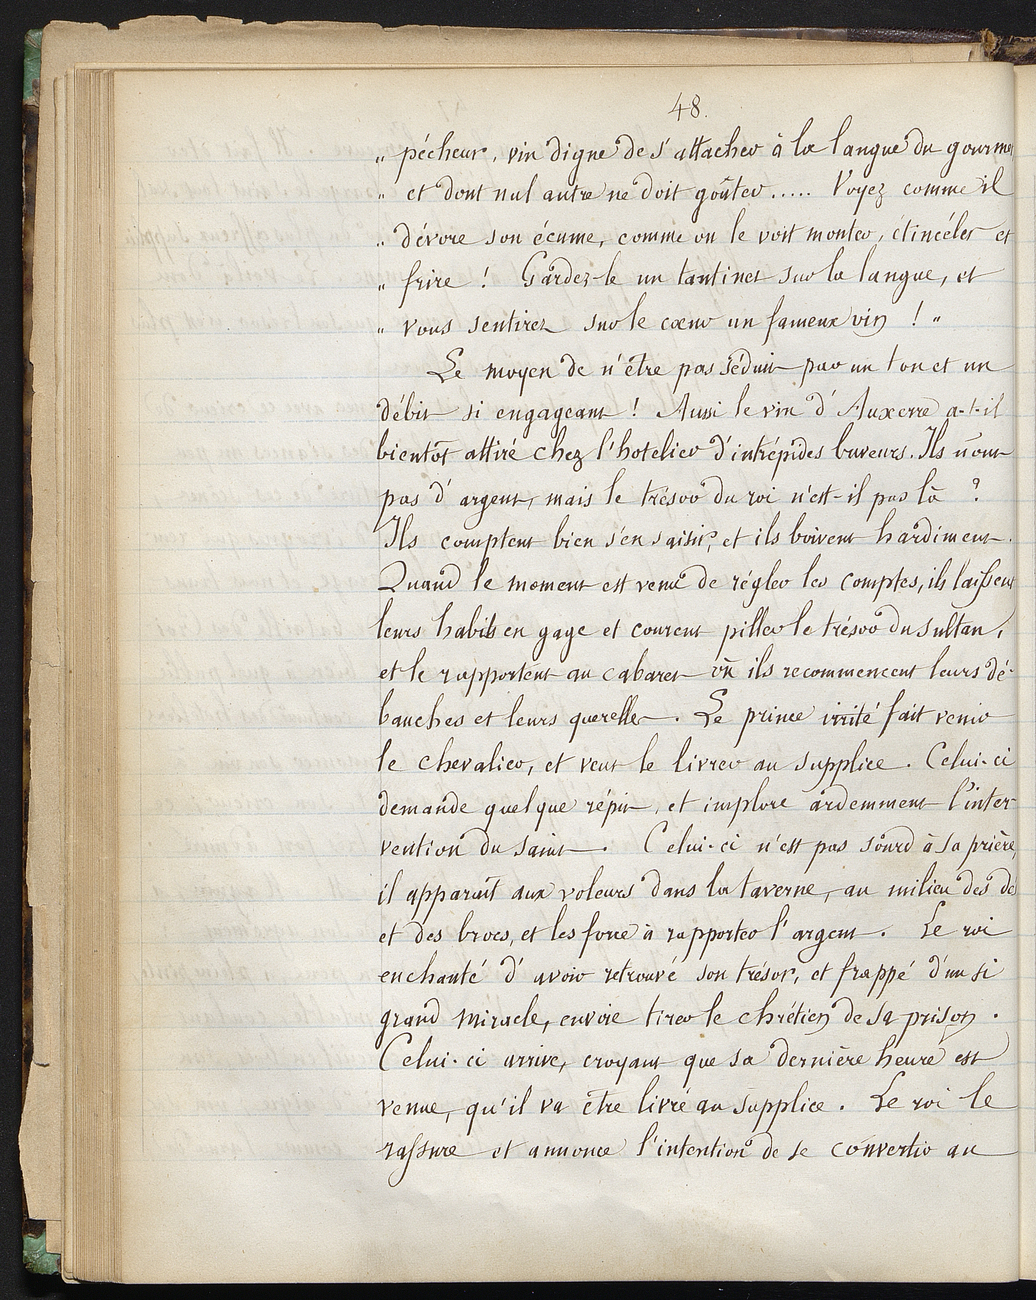 48.
„ pécheur, vin digne de s'attacher à la langue du gourmet
„ et dont nul autre ne doit goûter..... Voyez comme il
„ dévore son écume, comme on le voit monter, étincéler et
„ frire ! Gardez-le un tantinet sur la langue, et
„ vous sentirez sur le cœur un fameux vin ! „
Le moyen de n'être pas séduit par un ton et un
débit si engageant ! Aussi le vin d'Auxerre a-t-il
bientôt attiré chez l'hotelier d'intrépides buveurs. Ils n'ont
pas d'argent, mais le trésor du roi n'est-il pas là ?
Ils comptent bien s'en saisir, et ils boivent hardiment.
Quand le moment est venu de régler les comptes, ils laissent
leurs habits en gage et courent piller le trésor du sultan,
et le rapportent au cabaret où ils recommencent leurs dé-
bauches et leurs querelles. Le prince irrité fait venir
le chevalier, et veut le livrer au supplice. Celui-ci
demande quelque répit, et implore ardemment l'inter-
vention du saint. Celui-ci n'est pas sourd à sa prière,
il apparaît aux voleurs dans la taverne, au milieu des dés
et des brocs, et les force à rapporter l'argent. Le roi
enchanté d'avoir retrouvé son trésor, et frappé d'un si
grand miracle, envoie tirer le chrétien de sa prison.
Celui-ci arrive, croyant que sa dernière heure est
venue, qu'il va être livré au supplice. Le roi le
rassure et annonce l'intention de se convertir au